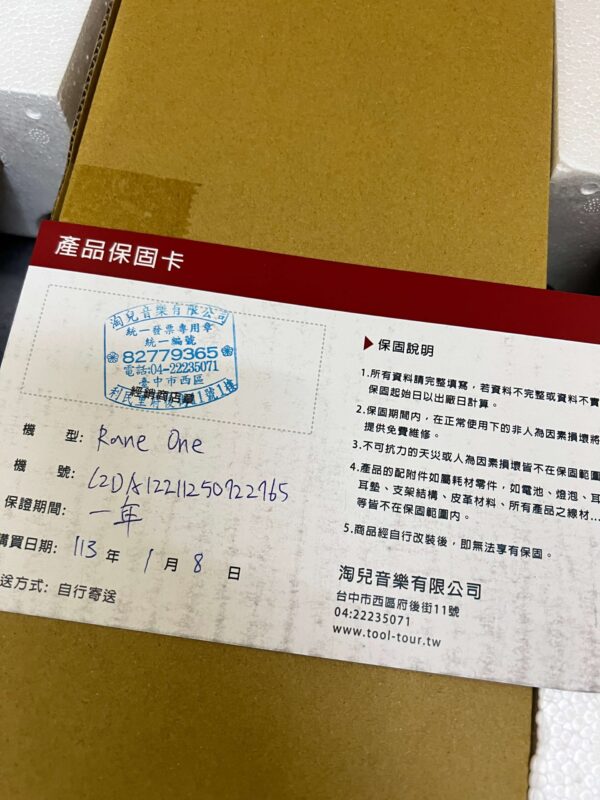 產品保固卡
淘兒音樂有限公司
統一發票專用章
統一編號
82779365
電話:04-22235071
臺中市西區
經銷商店章
機 型: Rane One
機 號:
保證期間: 一年
購買日期: 113 年 1 月 8 日
送方式: 自行寄送
保固說明
1.所有資料請完整填寫，若資料不完整或資料不實
保固起始日以出廠日計算。
2.保固期間內，在正常使用下的非人為因素損壞將
提供免費維修。
3.不可抗力的天災或人為因素損壞皆不在保固範圍
4.產品的配附件如屬耗材零件，如電池、燈泡、耳
耳墊、支架結構、皮革材料、所有產品之線材...
等皆不在保固範圍內。
5.商品經自行改裝後，即無法享有保固。
淘兒音樂有限公司
台中市西區府後街11號
04:22235071
www.tool-tour.tw